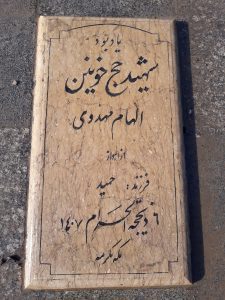 یادبود
شهید حج خونین
الهام مهدوی
از اهواز
فرزند: حمید
۶ ذیحجه الحرام ۱۴۰۷
مکه مکرمه